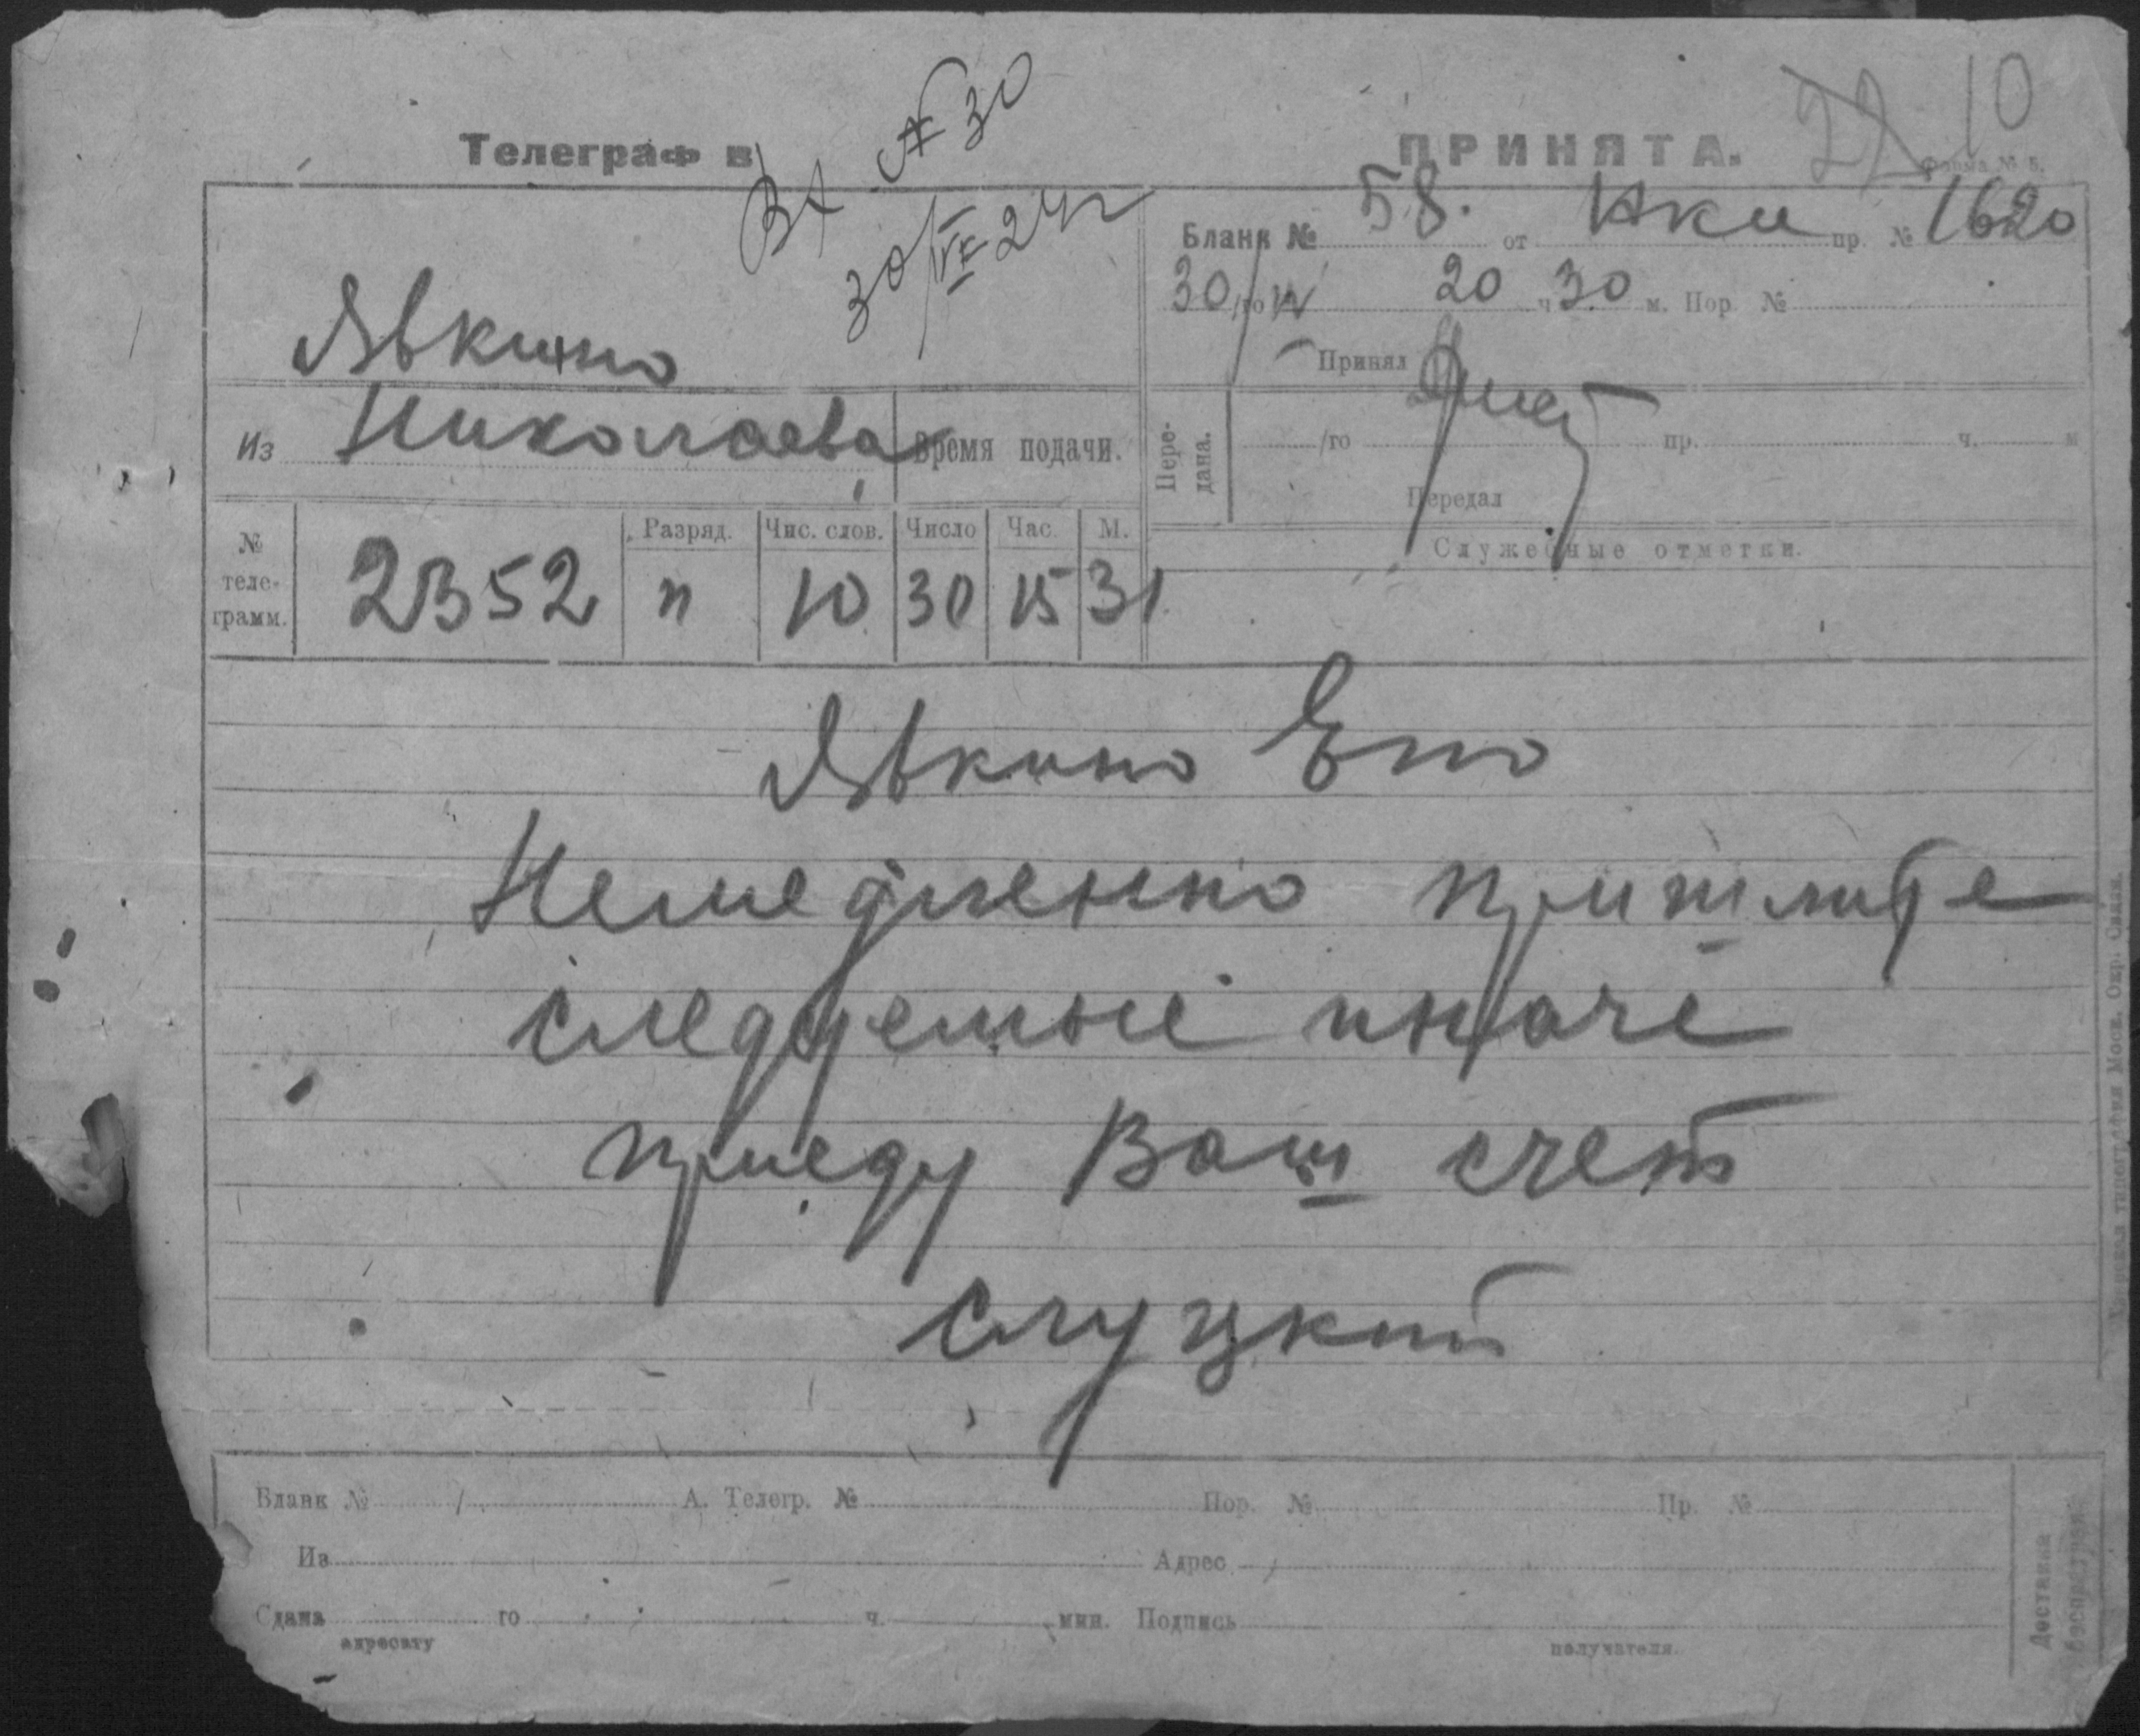 10
22
Вх № 30
30/VI 24 г
Телеграф в
ПРИНЯТА.
Форма № 5.
Бланк № 58. от Нки пр. № 1620
30/го 20 ч 30 м. Пор. №
Принял
Явкино
Из Николаева
Время подачи.
Пере-
дана.
/го пр. ч. м
Передал
Служебные отметки.
№
теле-
грамм.
Разряд. Чис. слов. Число Час. М.
2352 п 10 30 15 31
Явкино Епо
Немедленно пришлите
следуемые иначе
приеду Ваш счет
Слуцкий
типография Моск. Окр. Связи.
Бланк № / А. Телегр. № Пор. № Пр. №
Из Адрес
Сдана го ч. мин. Подпись
адресату получателя.
Доставка
бесплатная